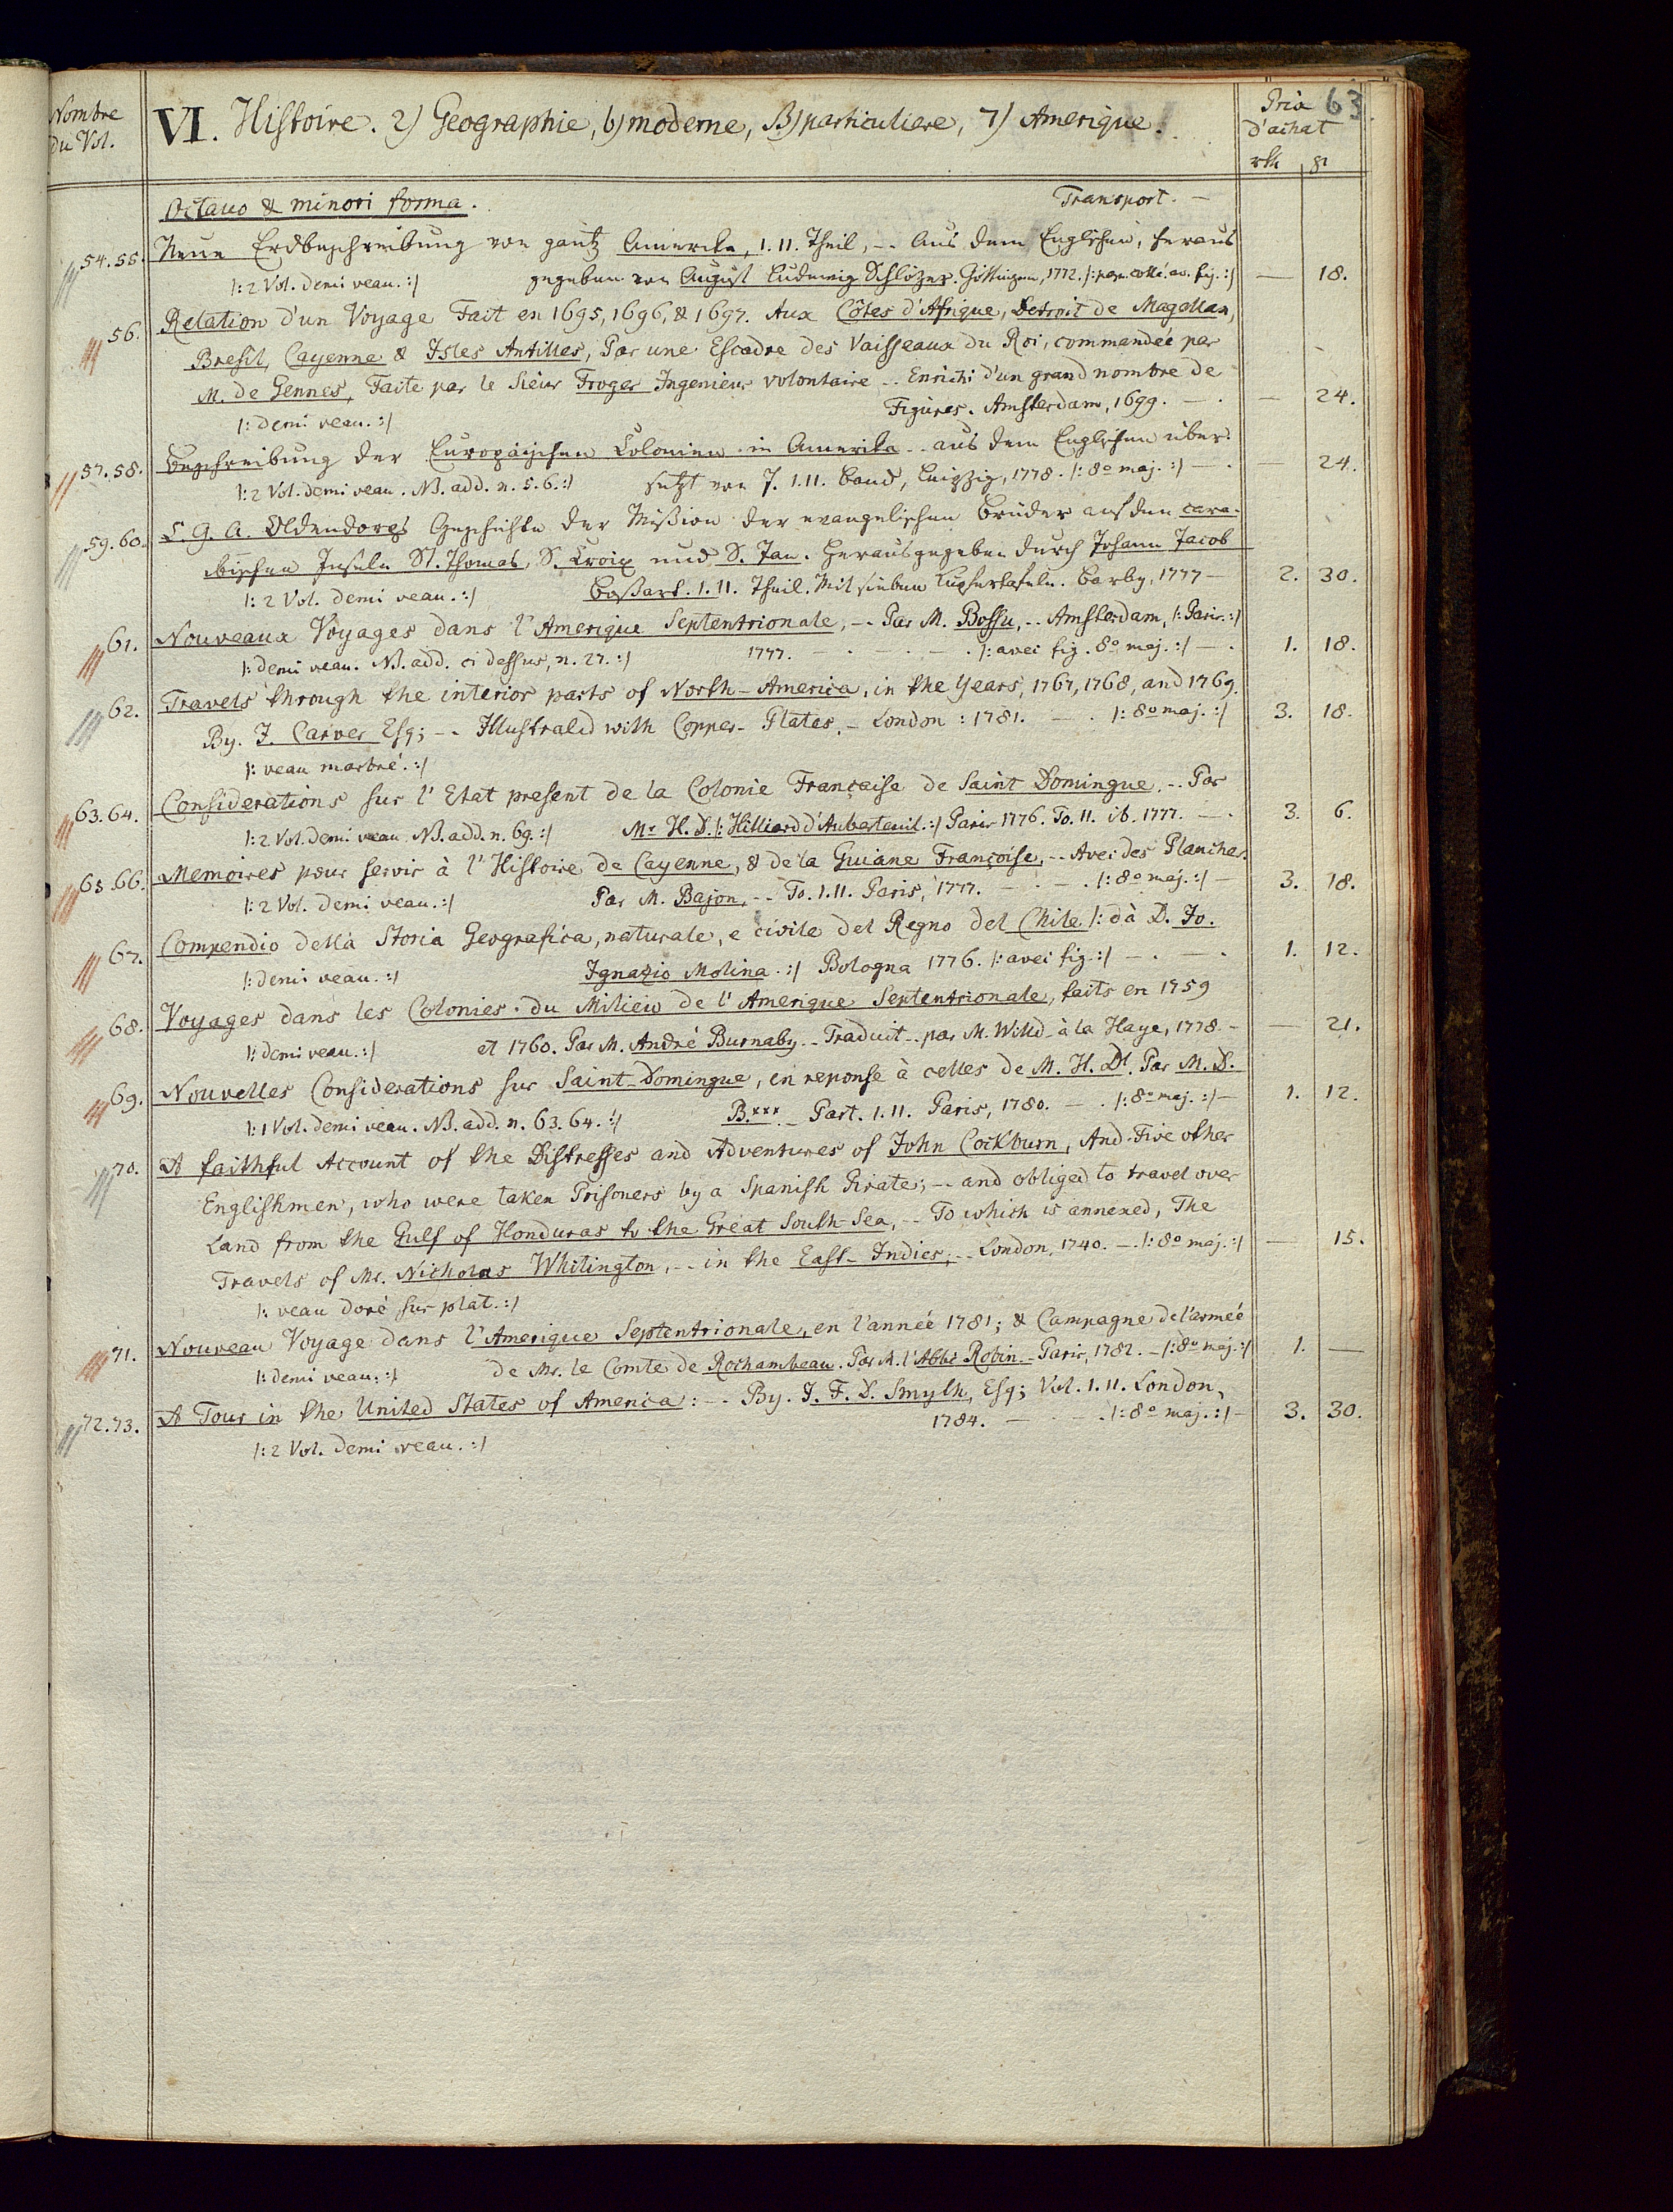 Nombre du Vol.
VI. Histoire. 2) Geographie, b) moderne, B) particuliere, 7) Amerique.
Prix d'achat
63.
rth gr
Octavo & minori forma. Transport. —
54.55. Neue Erdbeschreibung von gantz Amerika, I. II. Theil, -- Aus dem Englischen, heraus
|: 2 Vol. demi veau. :| gegeben von August Ludewig Schlözer. Göttingen, 1772. |: pap. collé. av. fig. :| — 18.
56. Relation d'un Voyage Fait en 1695, 1696, & 1697. Aux Côtes d'Afrique, Detroit de Magellan,
Bresil, Cayenne & Isles Antilles, Par une Escadre des Vaisseaux du Roi, commandée par
M. de Gennes, Faite par le Sieur Froger Ingenieur volontaire -- Enrichi d'un grand nombre de
|: demi veau. :| Figures. Amsterdam, 1699. — . — 24.
57.58. Beschreibung der Europäischen Colonien in Amerika -- aus dem Englischen über
|: 2 Vol. demi veau. NB. add. n. 5. 6. :| setzt von J. I. II. Band, Leipzig, 1778. |: 8o maj. :| — . — 24.
59.60. C. G. A. Oldendorps Geschichte der Mission der evangelischen Brüder auf den cara-
ibischen Inseln St. Thomas, S. Croix und S. Jan. Herausgegeben durch Johann Jacob
|: 2 Vol. demi veau. :| Boßart. I. II. Theil. Mit sieben Kupfertafeln. Barby, 1777 — 2. 30.
61. Nouveaux Voyages dans l'Amerique Septentrionale, -- Par M. Bossu, -- Amsterdam, |: Paris. :|
|: demi veau. NB. add. ci dessus, n. 27. :| 1777. — . — . — . |: avec fig. 8o maj. :| — . 1. 18.
62. Travels through the interior parts of North-America, in the Years, 1767, 1768, and 1769.
By. J. Carver Esq; -- Illustraled with Copper-Plates, - London: 1781. — . |: 8o maj. :| 3. 18.
|: veau marbré. :|
63.64. Considerations sur l'Etat present de la Colonie Française de Saint Domingue. -- Par
|: 2 Vol. demi veau. NB. add. n. 69. :| Mr H. D. |: Hilliard d'Auberteuil. :| Paris 1776. To. II. ib. 1777. — . 3. 6.
65.66. Memoires pour servir à l'Histoire de Cayenne, & de la Guiane Françoise, -- Avec des Planches.
|: 2 Vol. demi veau. :| Par M. Bajon, -- To. I. II. Paris, 1777. — . — . |: 8o maj. :| — 3. 18.
67. Compendio della Storia Geografica, naturale, e civile del Regno del Chile |: dà D. Jo.
|: demi veau. :| Ignazio Molina. :| Bologna 1776. |: avec fig. :| — . — . 1. 12.
68. Voyages dans les Colonies du Milieu de l'Amerique Septentrionale, faits en 1759
|: demi veau. :| et 1760. Par M. André Burnaby -- Traduit -- par M. Wild - à la Haye, 1778. - — 21.
69. Nouvelles Considerations sur Saint-Domingue, en reponse à celles de M. H. Dl. Par M. D.
|: 1 Vol. demi veau. NB. add. n. 63. 64. :| B.xxx. - Part. I. II. Paris, 1780. — . |: 8o maj. :| — 1. 12.
70. A faithful Account of the Distresses and Adventures of John Cockburn, And Five other
Englishmen, who were taken Prisoners by a Spanish Pirate; -- and obliged to travel over
Land from the Gulf of Honduras to the Great South-Sea, -- To which is annexed, The
Travels of Mr. Nicholas Whitington, -- in the East-Indies, -- London, 1740. — . |: 8o maj. :| — 15.
|: veau doré sur plat. :|
71. Nouveau Voyage dans l'Amerique Septentrionale, en l'année 1781; & Campagne de l'armée
|: demi veau. :| de Mr. le Comte de Rochambeau. Par M. l'Abbé Robin. - Paris, 1782. — |: 8o maj. :| 1. —
72.73. A Tour in the United States of America: -- By. J. F. D. Smyth, Esq; Vol. I. II. London,
|: 2 Vol. demi veau. :| 1784. — . — . |: 8o maj. :| — 3. 30.